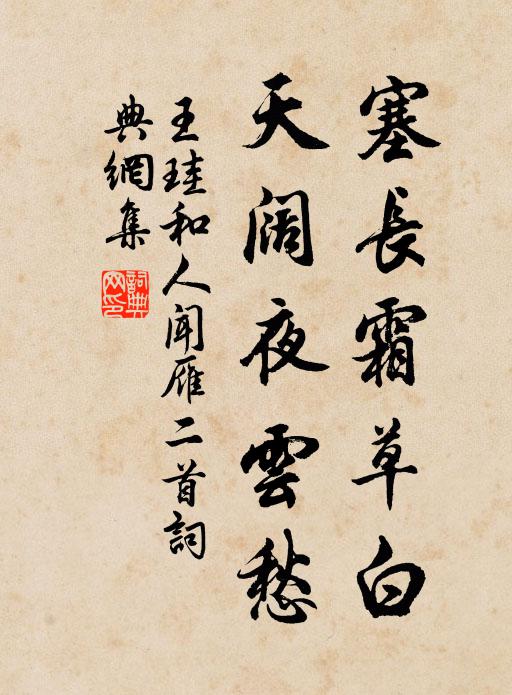 塞長霜草白
天阔夜雲愁
王珪和人闻雁二首詞
典網集
詞典网印